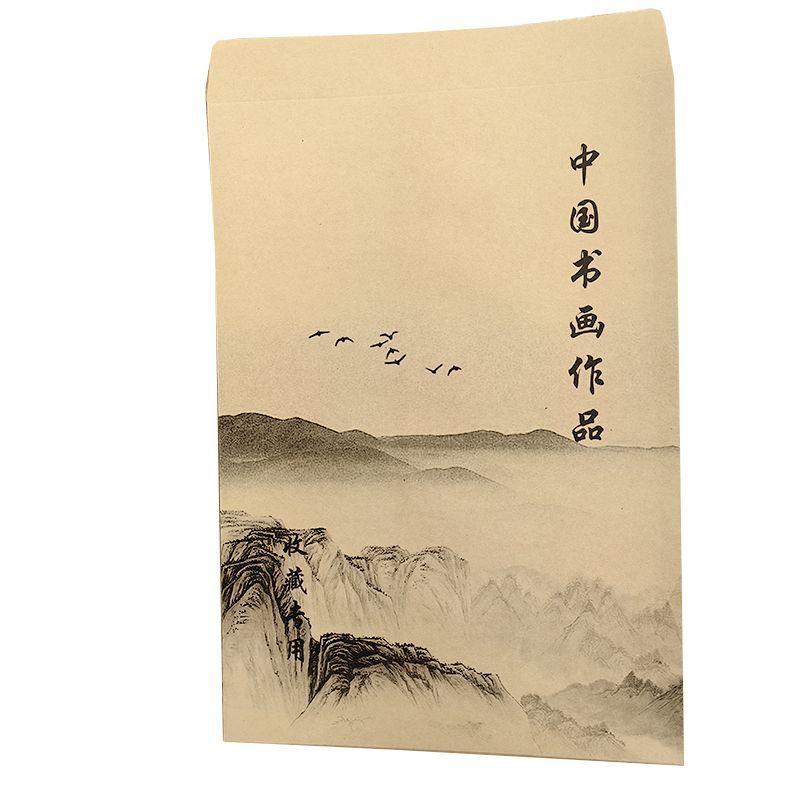 中国书画作品
收藏专用